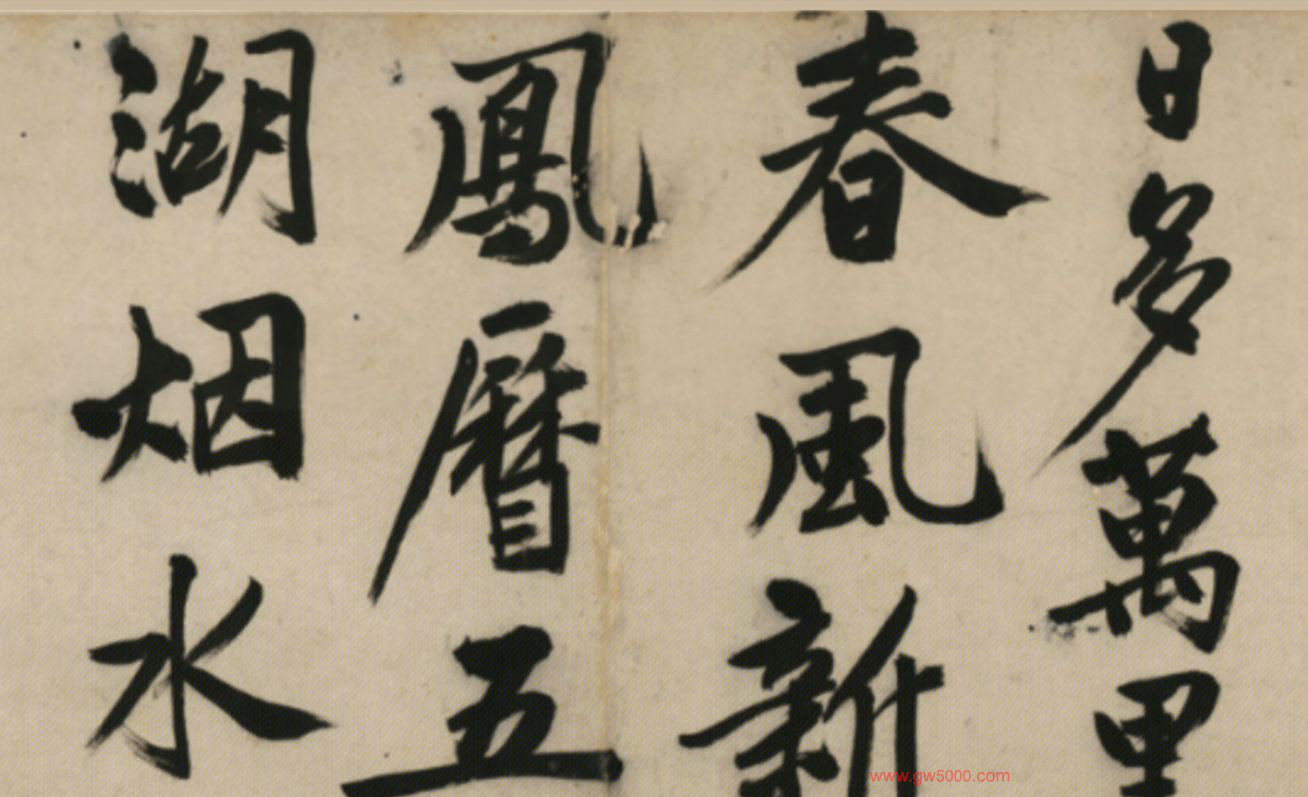 日多萬里
春風新
鳳暦五
湖烟水
www.gw5000.com